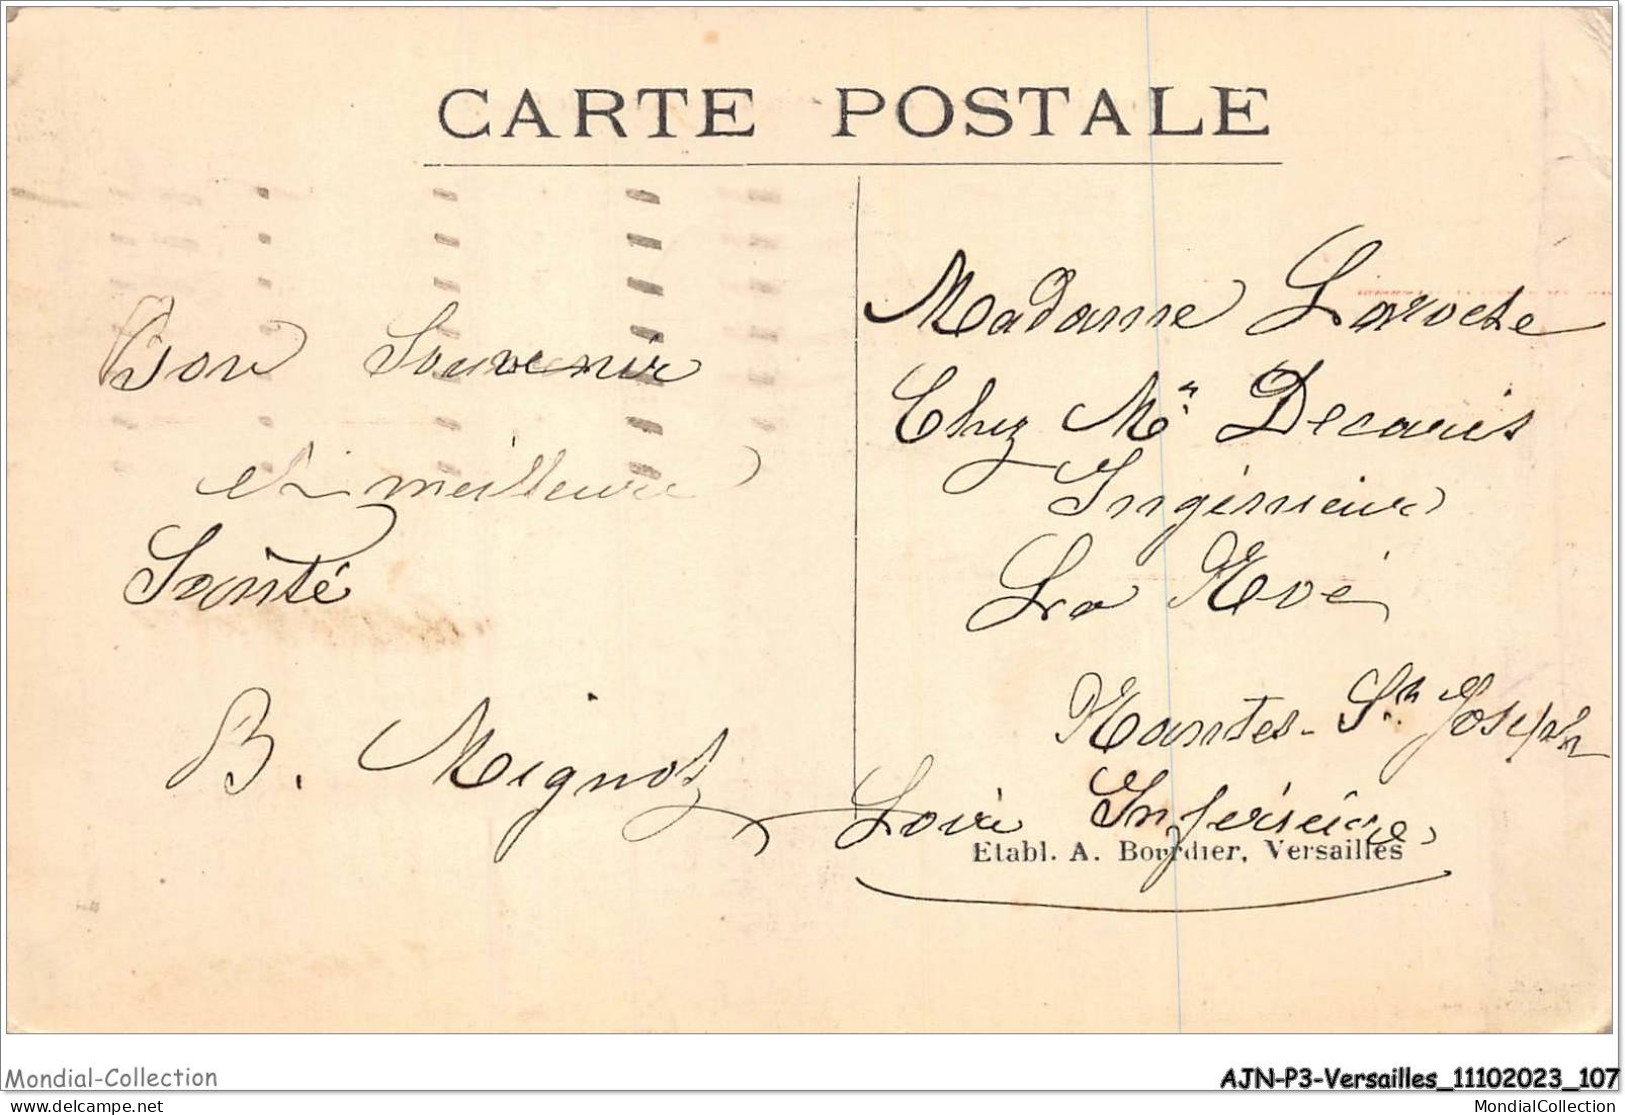 CARTE POSTALE
Bon Souvenir
et meilleure
Santé
B. Mignot
Madame Laroche
Chez Mr Decaris
Ingénieur
La Noé
Nantes - St Joseph
Loire Inférieure
Etabl. A. Bourdier, Versailles
Mondial-Collection
AJN-P3-Versailles_11102023_107
delcampe.net
MondialCollection